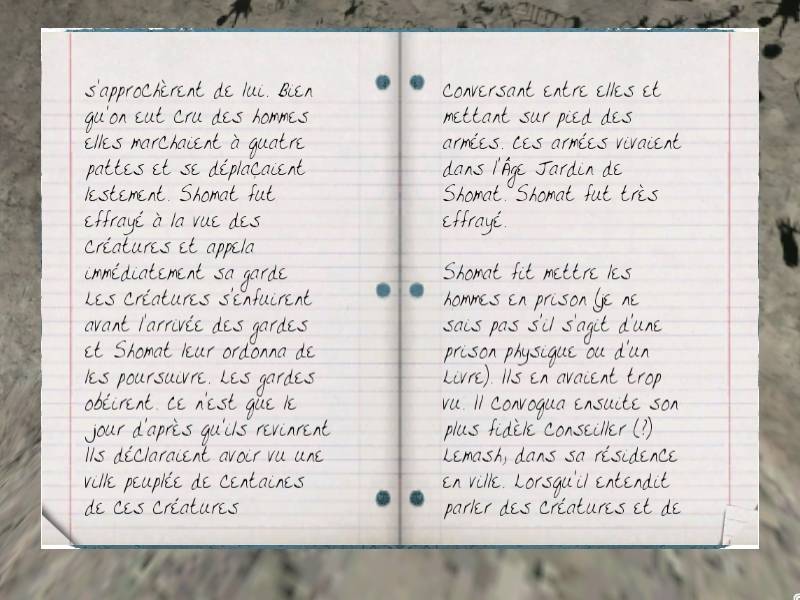 s'approchèrent de lui. Bien
qu'on eut cru des hommes
elles marchaient à quatre
pattes et se déplaçaient
lestement. Shomat fut
effrayé à la vue des
créatures et appela
immédiatement sa garde
Les créatures s'enfuirent
avant l'arrivée des gardes
et Shomat leur ordonna de
les poursuivre. Les gardes
obéirent. Ce n'est que le
jour d'après qu'ils revinrent
Ils déclaraient avoir vu une
ville peuplée de centaines
de ces créatures
conversant entre elles et
mettant sur pied des
armées. Ces armées vivaient
dans l'Âge Jardin de
Shomat. Shomat fut très
effrayé.
Shomat fit mettre les
hommes en prison (je ne
sais pas s'il s'agit d'une
prison physique ou d'un
Livre). Ils en avaient trop
vu. Il convoqua ensuite son
plus fidèle conseiller (?)
Lemash, dans sa résidence
en ville. Lorsqu'il entendit
parler des créatures et de